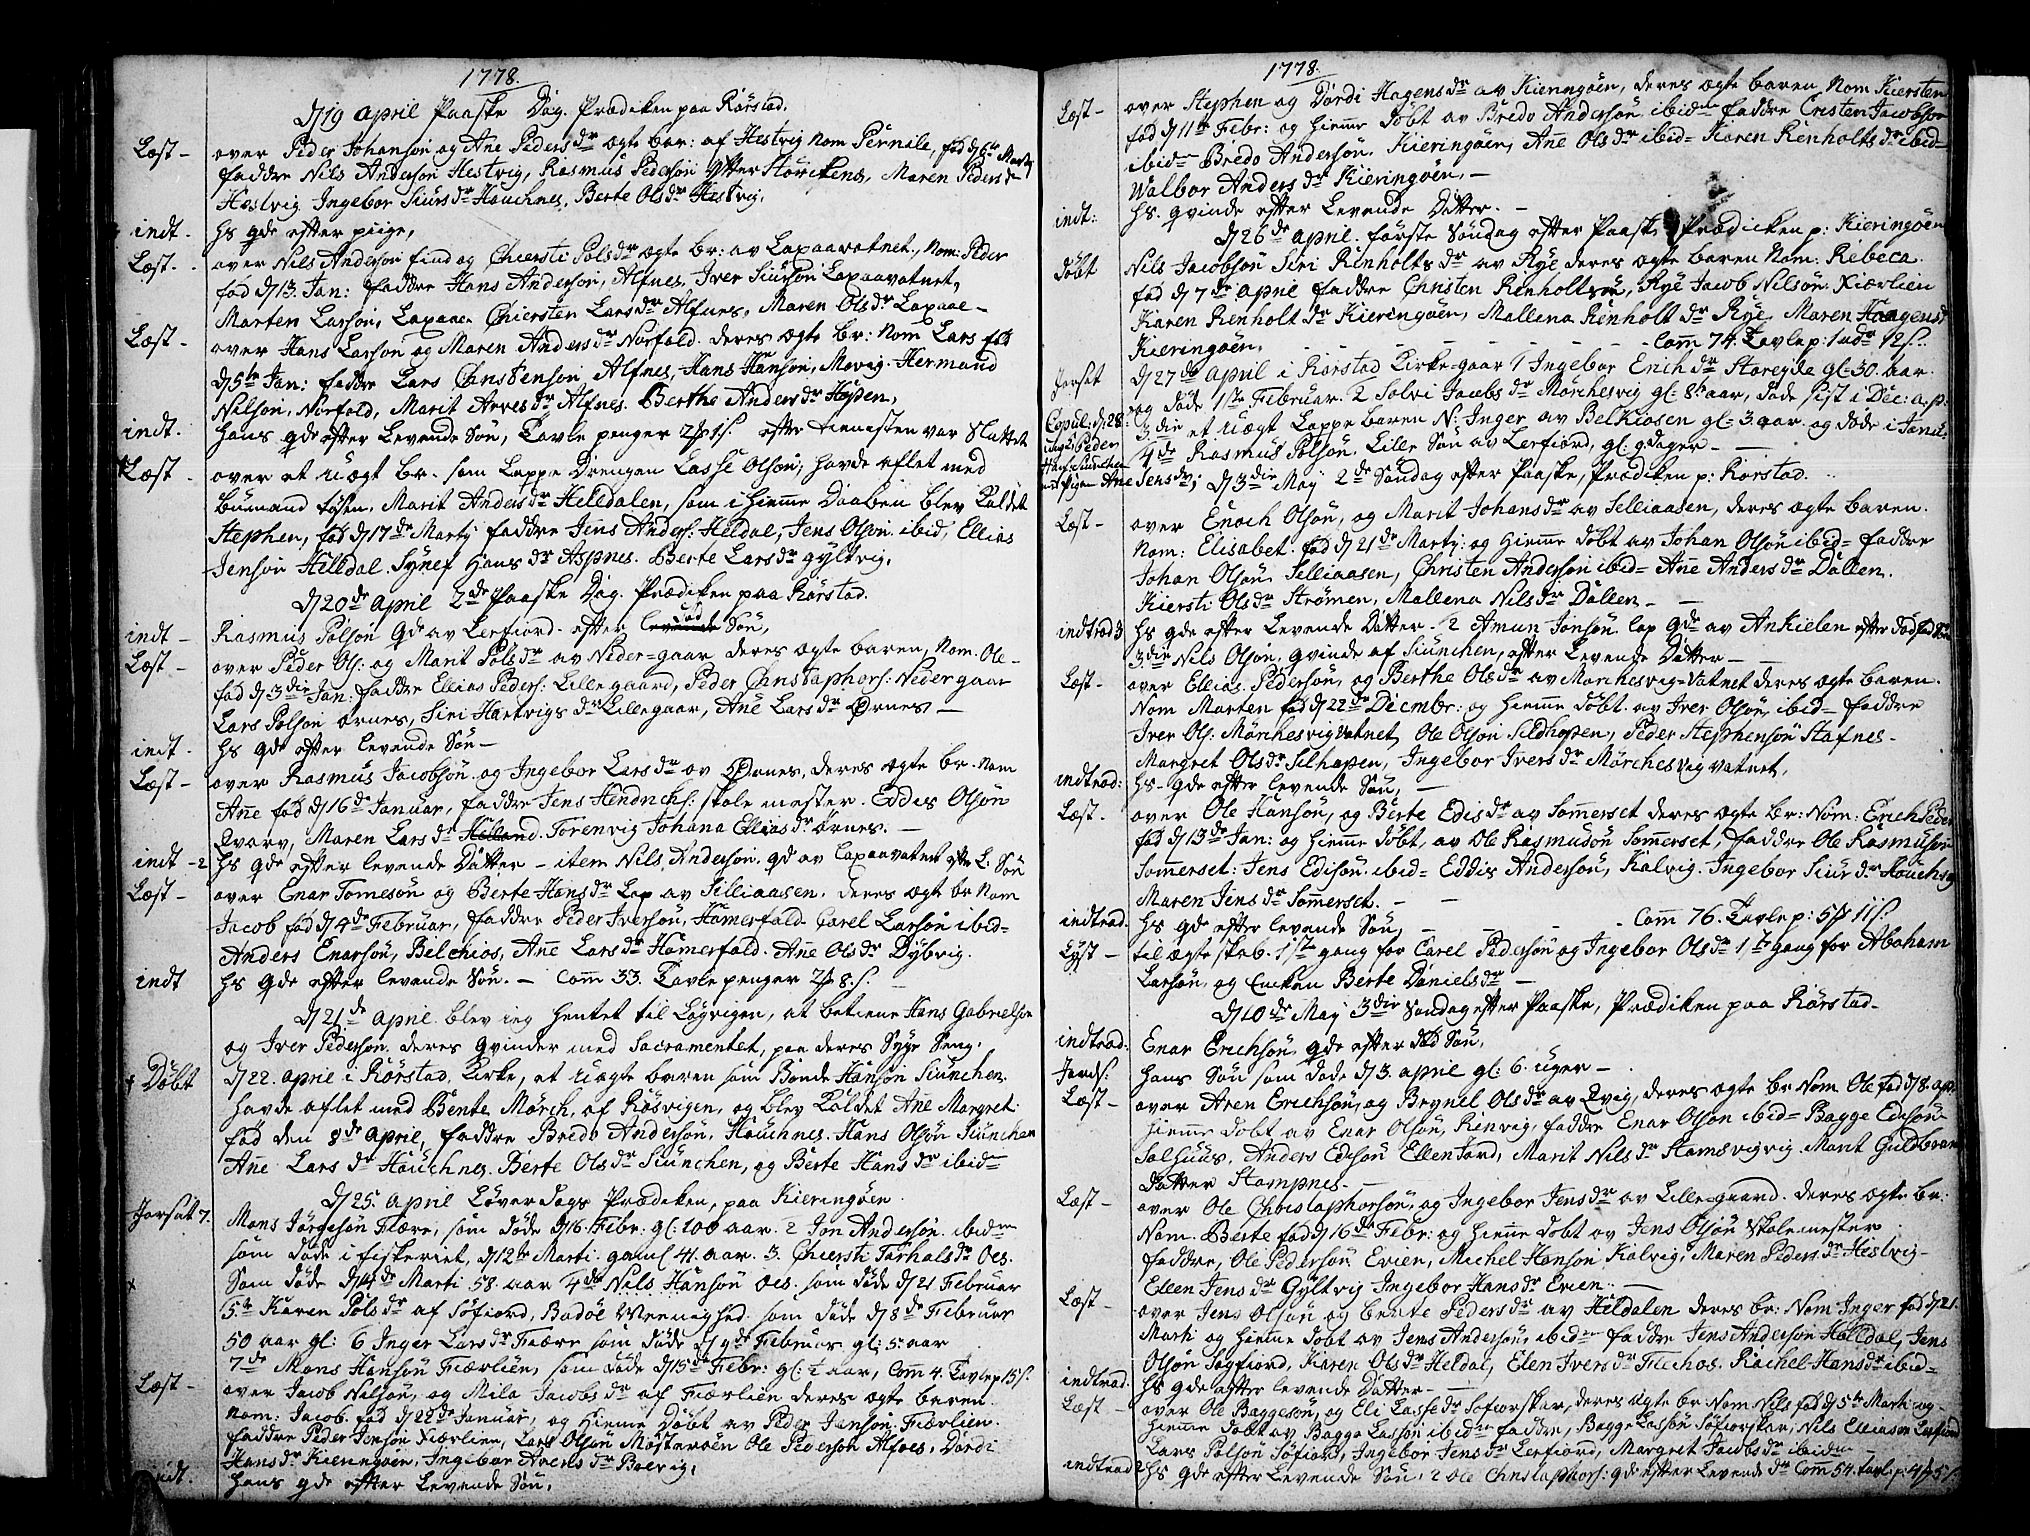 1778.
d/19 april Paaske Dag. Prædiken paa Rørstad.
Læst - over Peder Johanson og Ane Peders dr ægte bar: af Hestvig Nom Pernile, fød d/6te Martj
faddre Nils Anderson Hestvig, Rasmus Pederson, Maren Peders dr
Hestvig Ingebor Siurs dr Houchnes, Berte Ols dr Hestvig.
indt - hs qde efter piige,
Læst - over Nils Anderson find og Chiersti Pols dr ægte br: av Laxaavatnet, Nom: Peder
fød d/13. Jan: faddre Hans Anderson, Alfnes, Iver Siurson Laxaavatnet,
Marten Larson, Laxaae Chiersten Lars dr Alfnes, Maren Ols dr Laxaae -
Læst - over Hans Larson og Maren Anders dr Norfold. deres ægte br: Nom Lars fød
d/5te Jan: faddre Lars Christenson Alfnes, Hans Hanson, Mevig. Hermand
Nilson, Norfold, Marit Arves dr Alfnes. Berthe Anders dr Hopen,
indt. hans qde efter Levende Søn, Tavle penger efter tienesten var Sluttet
Læst over et uægt br. som Lappe Drengen Lasse Olson, havde aflet med
bumand tøsen, Marit Anders dr Helldalen, som i hieme Daaben blev kaldet
Stephen, fød d/17 de Martj faddre Jens Anders: Heldal, Jens Olson ibid, Ellias
Jenson Helldal. Synef Hans dr Aspnes. Berte Lars dr Gyltvig.
d/20 de april 2 de Paaske Dag. Prædiken paa Rørstad.
indt - Rasmus Polson Qde av Lerfiord. efter levende død Søn,
Læst - over Peder Ols: og Marit Pols dr av Neder=gaar deres ægte baren, Nom. Ole -
fød d/3 die Jan: faddre Ellias Peders: Lillegaard, Peder Christaphors: Nedergaar
Lars Polson Ørnes, Siri Hartvigs dr Lillegaar, Ane Lars dr Ørnes -
indt. hs qde efter levende Søn -
Læst - over Rasmus Jacobson og Ingebor Lars dr av Ørnes, deres ægte br. Nom
Ane fød d/16 de Januar, faddre Jens Hendrichs: skole mester. Eddis Olson
Qvarv, Maren Lars dr Torenvig Johana Ellias dr Ørnes. -
indt - 2 hs qde efter levende Datter - item Nils Anderson qd av Laxaavatnet efte L: Søn
Læst - over Enar Tomeson og Berte Hans dr Lap av Silliaasen. deres ægte br Nom
Jacob fød d/4 de Februar, faddre Peder Iverson, Homerfald Carel Larson ibid=
Anders Enarson, Belchios, Ane Lars dr Homerfald. Ane Ols dr Dybvig.
indt hs Qde efter levende Søn. - Com 33. Tavle penger 8 s.
d/21 de april blev ieg hentet til Løgvigen, at betiene Hans Gabrielson
og Iver Pederson deres qvinder med Sacramentet, paa deres Syge Seng.
Døbt d/22. april i Rørstad Kirke, et uægte baren som Bonde Hanson Siunchen
havde aflet med Bente Mørch, af Røsvigen, og blev kaldet Ane Margret.
fød den 8 de april, faddre Bredo Anderson. Houchnes. Hans Olson Siunchen
Ane Lars dr Houchnes. Berte Ols dr Siunchen, og Berte Hans dr ibid=
d/25. april Løver Dags Prædiken, paa Kieringøen.
Jorsat 7. Mons Jørgeson Fiære, som døde d/16. Febr. gl: 100 aar. 2 Jon Anderson ibidem
som døde i fiskeriet, d/12te Marti. gaml 41. aar. 3. Chiersti Torhals dr Oes.
Som døde Marti 58. aar 4 de Nils Hanson Oes. som døde d/21 Februar
5te Karen Pols dr af Søfiord, Bodøe Menighed som døde d/8 de Februar
50 aar gl: 6 Inger Lars dr Fiære som døde d/9 de Februar gl: 5. aar
7 de Mons Hanson Fiærlien, som døde d/15 de Febr: gl: ½ aar, Com 4. Tavle p 15 s.
Læst - over Jacob Nilson, og Mila Jacobs dr af Fiærlien deres ægte baren
Nom: Jacob. fød d/22 de Januar, og hieme Døbt av Peder Janson. Fiærlien.
faddre Peder Janson Fiærlien, Lars Olson Ole Pederson Alfnes, Dordi
Hans dr Kieringøen, Ingebor
indt. hans qde efter Levende Søn.
1778.
Læst - over Stephen og Dordi Hagens dr av Kieringøen, deres ægte baren Nom Kiersten
fød d/11te Febr: og hieme døbt av Bredo Anderson ibidem faddre Cristen Jacobson
ibid= Bredo Anderson. Kieringøen, Ane Ols dr ibid= Karen Renholts dr ibid=
Walbor Anders dr Kieringøen. -
indt: hs. qvinde efter Levende Datter. -
d/26 de april. første Søndag efter Paaske Prædiken p: Kieringøen
døbt Nils Jacobson Siri Renholts dr av Rye deres ægte baren Nom: Rebeca.
fød d/7 de april faddre Christen Renholtson, Rye Jacob Nilson. Fiærlien
Karen Renholt dr Kieringøen, Mallena Renholt dr Rye, Maren Haagens dr
Kieringøen. - - - - Com 74. Tavle p: 1 ud 12 s.
Jorsat d/27 de april i Rørstad Kirke-gaar 1 Ingebor Erich dr Storeide gl: 30. aar.
og døde 1te Februar. 2 Solvi Jacobs dr Mørchesvig gl: 8. aar, døde sist i Dec: a.p:
3 die et uægt Lappe baren N: Inger av Belkiosen gl: 3. aar. og døde i Janu:
4 de Rasmus Polson. Lille Søn av Lerfiord, gl: 9 dager -
Copul: d/28
Peder
Siunchen
Pigen Ane Jens dr; d/3 die Maj 2 de Søndag efter Paaske, Prædiken p: Rørstad.
Læst - over Enoch Olson, og Marit Johans dr av Selliaasen, deres ægte baren.
Nom: Elisabet. fød d/21 de Martj: og hieme døbt av Johan Olson ibid= faddre
Johan Olson, Selliaasen, Christen Anderson ibid= Ane Anders dr Dallen.
Kiersti Ols dr Strømen, Mallena Nils dr Dallen - -
indtrad 3 hs qde efter Levende Datter. 2 Amun Jonson. Lap qde av Ankielen efter død fød Søn
3 die Nils Olson. qvinde af Siunchen, efter Levende Datter -
Læst - over Ellias. Pederson, og Berthe Ols dr av Mørchesvig-Vatnet deres ægte baren.
Nom Marten fød d/22 de Decmbr: og hieme døbt. av Iver Olson ibid= faddre
Iver Ols: Mørchesvigvatnet, Ole Olson Sildhopen, Peder Stephenson Stafnes -
Margret Ols dr Silhopen, Ingebor Ivers dr Mørchesvigvatnet.
indtrad: hs - qde efter levende Søn, -
Læst. over Ole Hanson, og Berte Edis dr av Somerset deres ægte br: Nom: Erich Peder
fød d/13 de Jan: og hieme døbt, av Ole Rasmuson Somerset, faddre Ole Rasmuson
Somerset: Jens Edison ibid= Eddis Anderson, Kalvig. Ingebor Siur dr Houchnes
Maren Jens dr Somerset. - -
indtrad. hs qde efter levende Søn, - - - Com 76. Tavle p: 11 s.
Lyst - til ægteskab. 1ste gang for Carel Pederson og Ingebor Ols dr 1te gang for Abraham
Larson, og Enken Berte Daniels dr -
d/10 de Maj 3 die Søndag efter Paaske, Prædiken paa Rørstad -
indtrad: Enar Erichson, qde efter død Søn,
Jords: hans Søn som døde d/3. april gl: 6. uger -
Læst - over Aren Erichson, og Brynel Ols dr av Qvig, deres ægte br. Nom Ole fød d/8. apr
hieme døbt av Enar Olson, Renvig, faddre Enar Olson ibid= Bagge Edison
Solhuus, Anders Edison Ellenjord, Marit Nils dr Hamsvigvig. Marit Guldbran
datter Stompnes. -
Læst - over Ole Christaphorson, og Ingebor Jens dr av Lille-gaard. deres ægte br:
Nom. Berte fød d/16 de Febr: og hieme døbt av Jens Olson skolemester
faddre, Ole Pederson Evien, Michel Hanson Kalvig, Maren Peders dr Hestvig -
Eleen Jens dr Gyltvig Ingebor Hans dr Evien. -
Læst - over Jens Olson og Bente Peders dr av Hildalen deres br: Nom Inger fød d/21.
Marti og hieme døbt av Jens Anderson, ibidem faddre Jens Anderson Helldal, Jens
Olson Sagfiord, Karen Ols dr Heldal, Elen Ivers dr Rachel Hans dr ibid=
indtrad: hs qde efter levende Datter - -
Læst - over Ole Baggeson, og Eli Lasse dr Søfiorskar, deres ægte br Nom. Nils fød d/5te Marti og -
hieme døbt av Bagge Lasson ibidem faddre, Bagge Lasson Søfiorskar, Nils Elliason Lerfiord
Lars Polson Søfiord, Ingebor Jens dr Lerfiord, Margret Jacobs dr ibidem -
indtrad 2 hs qde efter Levende Søn. 2 Ole Christaphors: qde efter Levende dr Com 54. tavle p: 4 5 s.